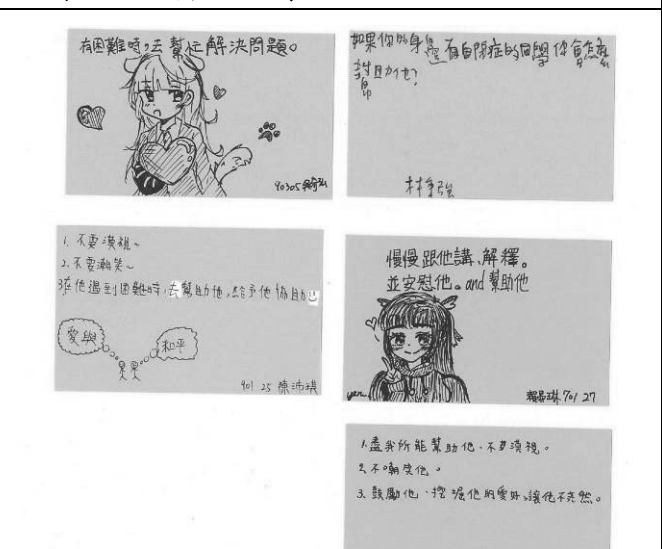 有困難時,去幫忙解決問題。
90305
如果你的身邊有自閉症的同學你會怎麼
幫助他?
1. 不要漠視~
2. 不要嘲笑~
3.在他遇到困難時,去幫助他,給予他協助
愛與
和平
901 25
慢慢跟他講、解釋。
並安慰他。and 幫助他
yen.
701 27
1.盡我所能幫助他、不要漠視。
2.不嘲笑他。
3.鼓勵他、挖掘他的愛好,讓他不茫然。